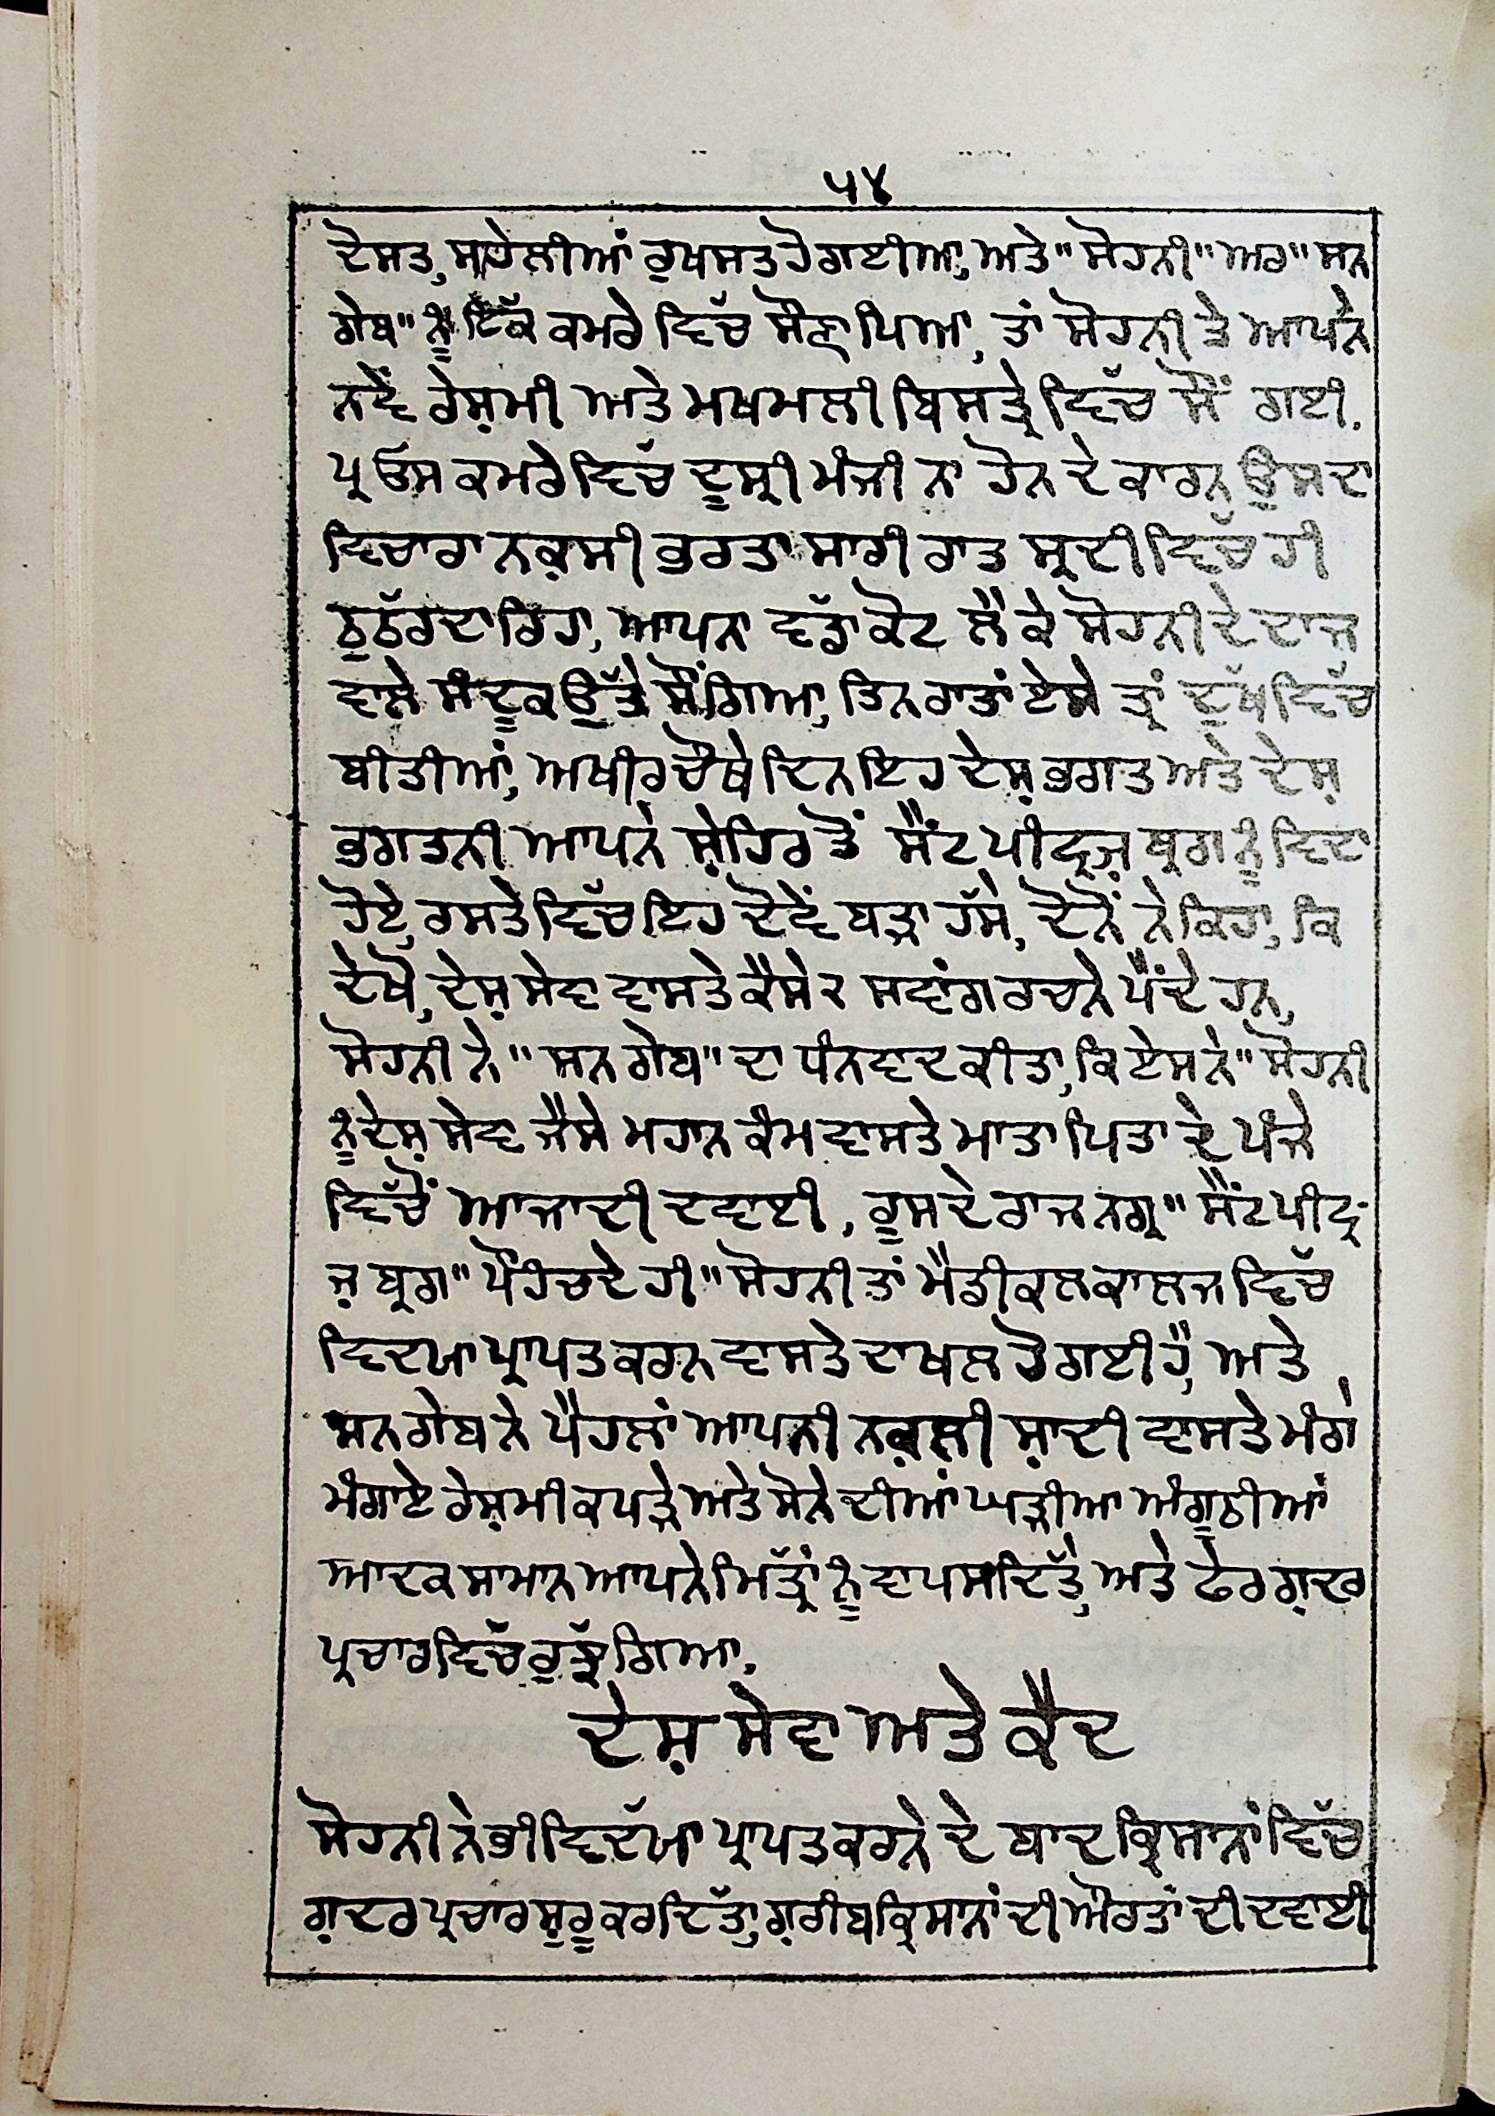 ੫੪
ਦੋਸਤ, ਸਹੇਲੀਆਂ ਰੁਖਸਤ ਹੋ ਗਈਆ, ਅਤੇ "ਸੋਹਨੀ" ਅਰ "ਸਨ
ਗੇਬ" ਨੂੰ ਇੱਕ ਕਮਰੇ ਵਿੱਚ ਸੌਣਾ ਪਿਆ, ਤਾਂ ਸੋਹਨੀ ਤੇ ਆਪਨੇ
ਨਵੇਂ ਰੇਸ਼ਮੀ ਅਤੇ ਮਖਮਲੀ ਬਿਸਤ੍ਰੇ ਵਿੱਚ ਸੌਂ ਗਈ.
ਪ੍ਰ ਓਸ ਕਮਰੇ ਵਿੱਚ ਦੂਸ੍ਰੀ ਮੰਜੀ ਨਾ ਹੋਨ ਦੇ ਕਾਰਨ ਉਸਦਾ
ਵਿਚਾਰਾ ਨਕ਼ਲੀ ਭਰਤਾ ਸਾਰੀ ਰਾਤ ਸ੍ਰਦੀ ਵਿੱਚ ਹੀ
ਠੁਠੱਰਦਾ ਰਿਹਾ, ਆਪਨਾ ਵੱਡਾ ਕੋਟ ਲੈ ਕੇ ਸੋਹਨੀ ਦੇ ਦਾਜ
ਵਾਲੇ ਸੰਦੂਕ ਉੱਤੇ ਸੌਂ ਗਿਆ, ਤਿਨ ਰਾਤਾਂ ਏਸੇ ਤ੍ਰਾਂ ਦੁੱਖ ਵਿੱਚ
ਬੀਤੀਆਂ, ਅਖੀਰ ਚੌਥੇ ਦਿਨ ਇਹ ਦੇਸ਼ ਭਗਤ ਅਤੇ ਦੇਸ਼
ਭਗਤਨੀ ਆਪਨੇ ਸ਼ੇਹਿਰ ਤੋਂ ਸੈਂਟ ਪੀਟ੍ਰਜ਼ ਬ੍ਰਗ ਨੂੰ ਵਿਦਾ
ਹੋਏ, ਰਸਤੇ ਵਿੱਚ ਇਹ ਦੋਵੇਂ ਬੜਾ ਹੱਸੇ, ਦੋਨੋਂ ਨੇ ਕਿਹਾ, ਕਿ
ਦੇਖੋ, ਦੇਸ਼ ਸੇਵਾ ਵਾਸਤੇ ਕੈਸੇ ੨ ਸਵਾਂਗ ਰਚਨੇ ਪੈਂਦੇ ਹਨ,
ਸੋਹਨੀ ਨੇ "ਸਨ ਗੇਬ" ਦਾ ਧੰਨਵਾਦ ਕੀਤਾ, ਕਿ ਏਸ ਨੇ "ਸੋਹਨੀ
ਨੂੰ ਦੇਸ਼ ਸੇਵਾ ਜੈਸੇ ਮਹਾਨ ਕੰਮ ਵਾਸਤੇ ਮਾਤਾ ਪਿਤਾ ਦੇ ਪੰਜੇ
ਵਿੱਚੋਂ ਆਜਾਦੀ ਦਵਾਈ, ਰੂਸ ਦੇ ਰਾਜ ਨਗ੍ਰ "ਸੈਂਟ ਪੀਟ੍ਰ-
ਜ਼ ਬ੍ਰਗ" ਪੌਹਿਚਦੇ ਹੀ "ਸੋਹਨੀ ਤਾਂ ਮੈਡੀਕਲ ਕਾਲਜ ਵਿੱਚ
ਵਿਦਯਾ ਪ੍ਰਾਪਤ ਕਰਨ ਵਾਸਤੇ ਦਾਖਲ ਹੋ ਗਈ ਹੈ, ਅਤੇ
ਸਨਗੇਬ ਨੇ ਪੈਹਲਾਂ ਆਪਨੀ ਨਕ਼ਲੀ ਸ਼ਾਦੀ ਵਾਸਤੇ ਮੰਗੇ
ਮੰਗਾਏ ਰੇਸ਼ਮੀ ਕਪੜੇ ਅਤੇ ਸੋਨੇ ਦੀਆਂ ਘੜੀਆ ਅੰਗੂਠੀਆਂ
ਆਦਕ ਸਾਮਾਨ ਆਪਨੇ ਮਿੱਤ੍ਰਾਂ ਨੂੰ ਵਾਪਸ ਦਿੱਤੇ, ਅਤੇ ਫੇਰ ਗ਼ਦਰ
ਪ੍ਰਚਾਰ ਵਿੱਚ ਰੁਝੱ ਗਿਆ.
ਦੇਸ਼ ਸੇਵਾ ਅਤੇ ਕੈਦ
ਸੋਹਨੀ ਨੇ ਭੀ ਵਿਦੱਯਾ ਪ੍ਰਾਪਤ ਕਰਨੇ ਦੇ ਬਾਦ ਕ੍ਰਿਸਾਨਾਂ ਵਿੱਚ
ਗ਼ਦਰ ਪ੍ਰਚਾਰ ਸ਼ੁਰੂ ਕਰ ਦਿੱਤਾ, ਗ਼ਰੀਬ ਕ੍ਰਿਸਾਨਾਂ ਦੀ ਔਰਤਾਂ ਦੀ ਦਵਾਈ